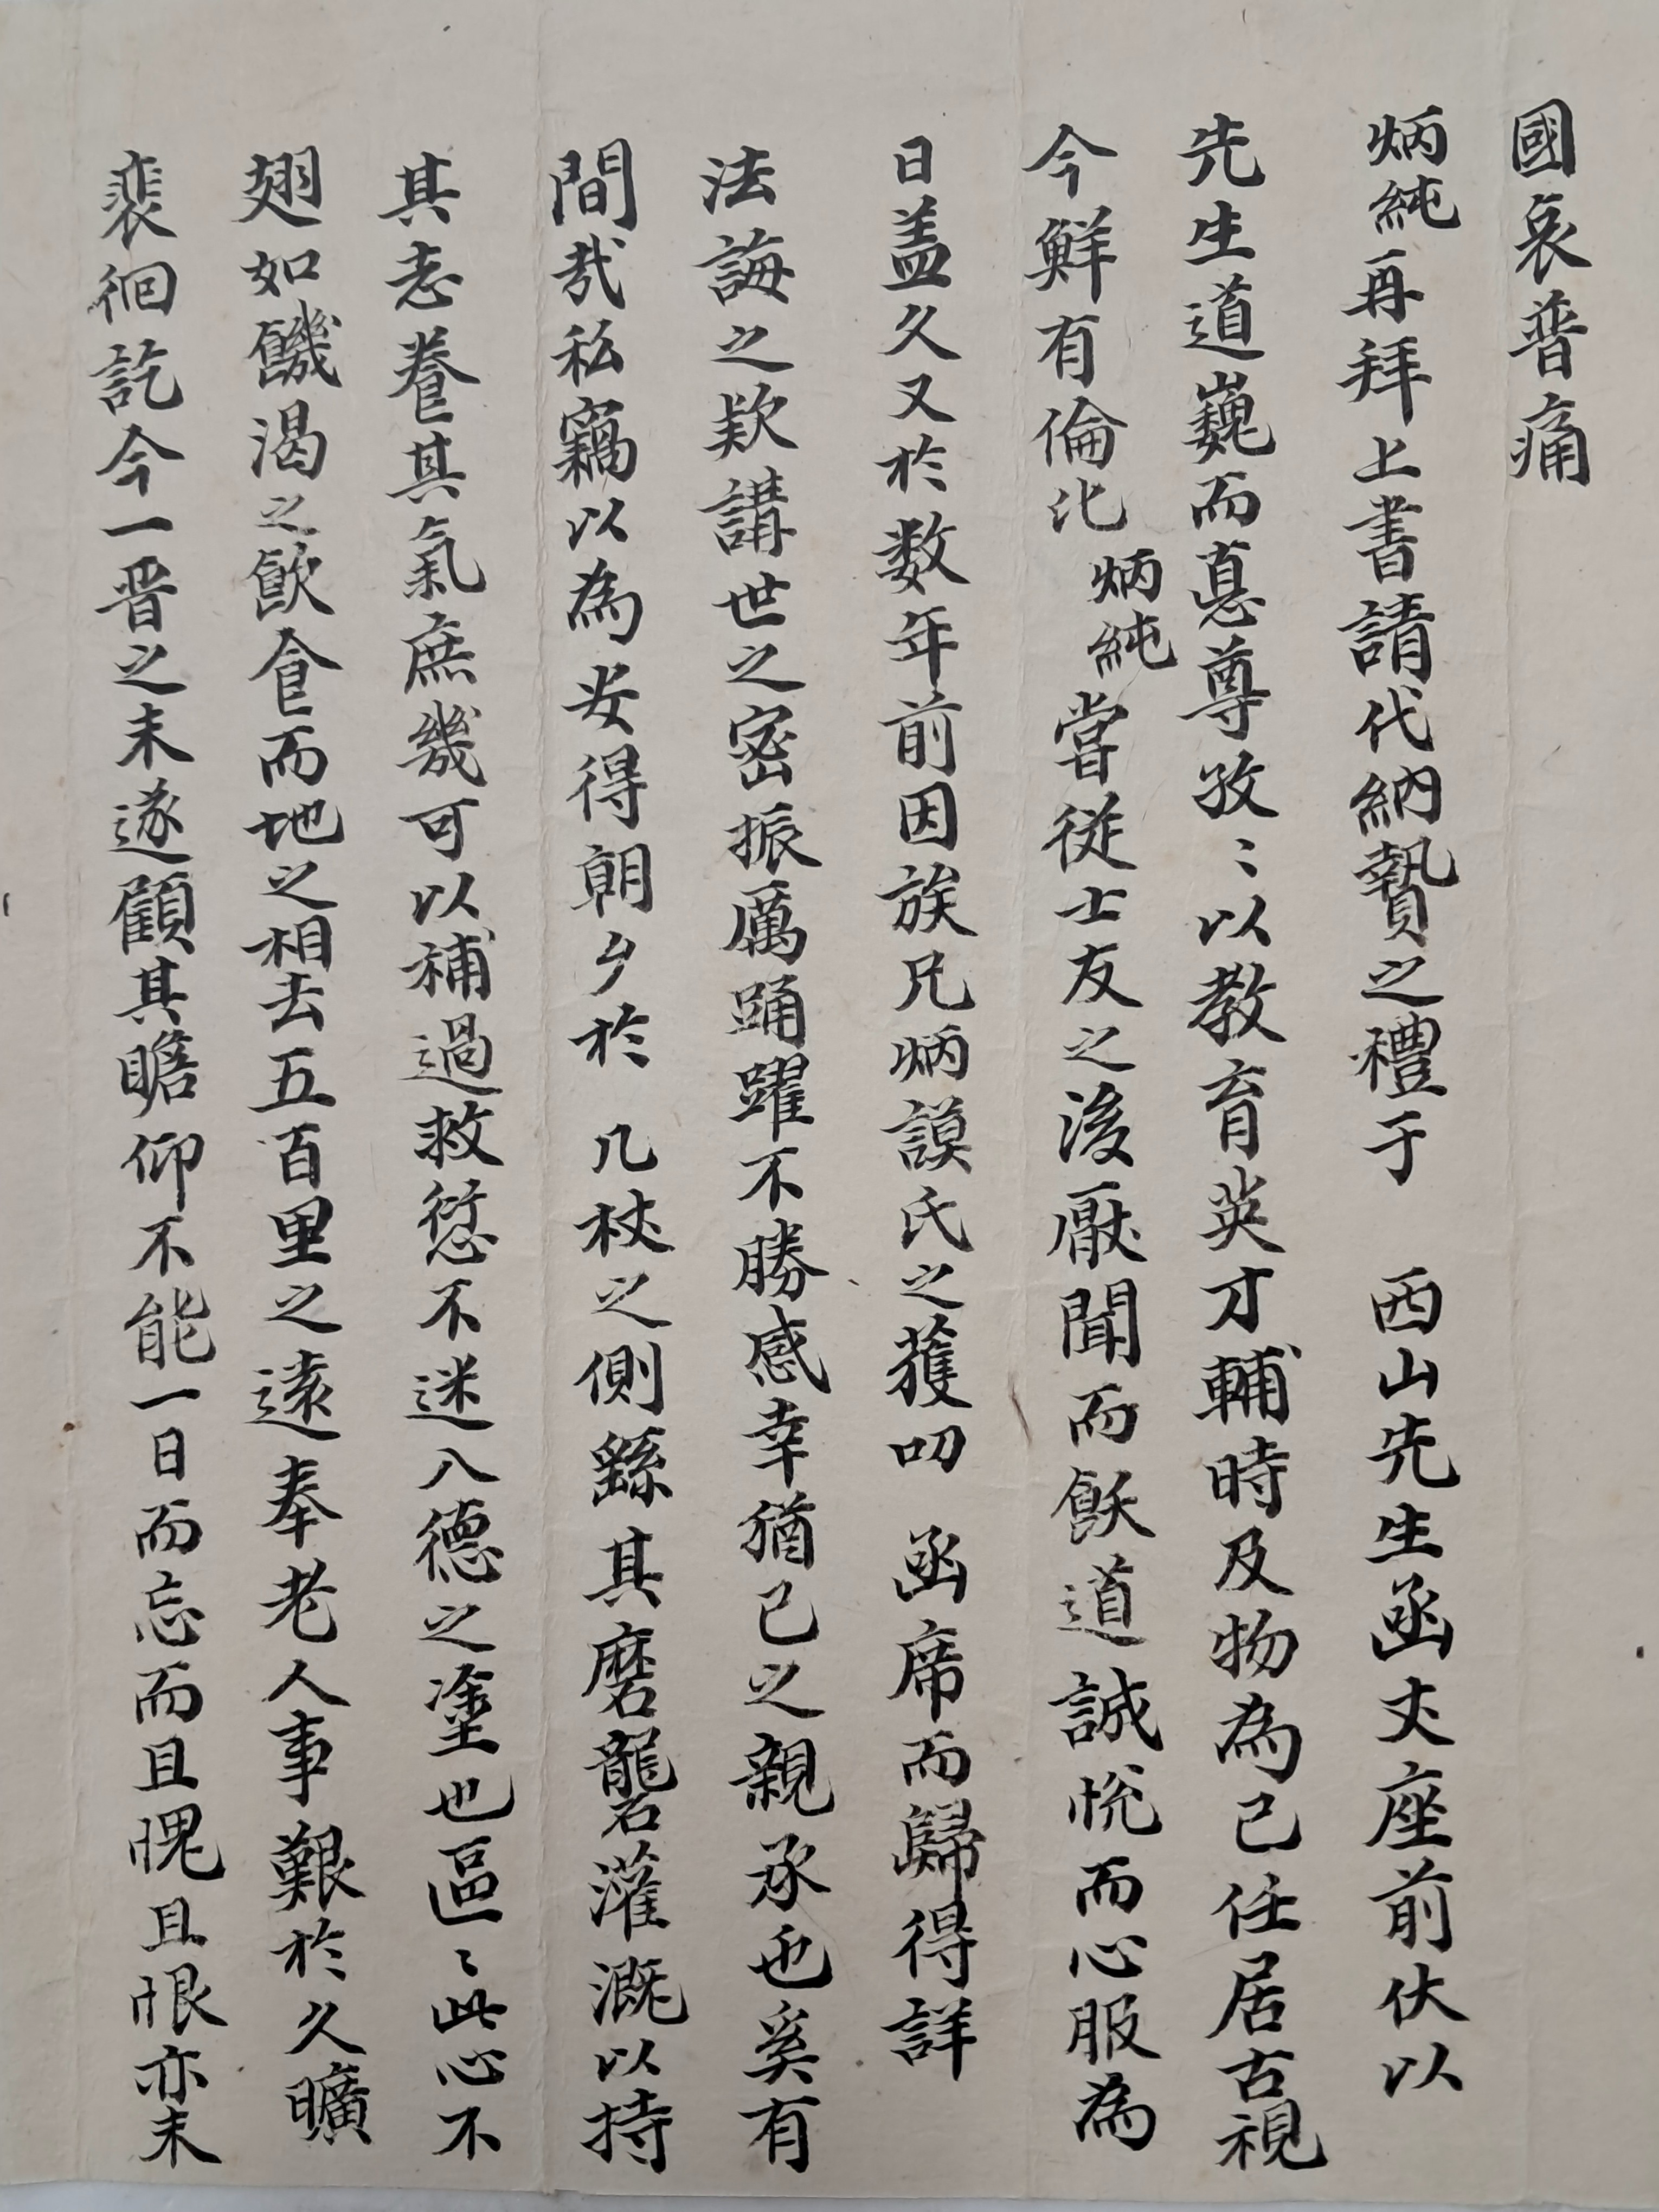 國哀普痛
炳純再拜上書請代納贄之禮于 西山先生函丈座前伏以
先生道巍而惪尊孜〻以教育英才輔時及物為己任居古視
今鮮有倫比炳純嘗從士友之後厭聞而飫道誠悅而心服為
日盖久又於数年前因族兄炳謨氏之獲叨 函席而歸得詳
法誨之欵講世之密振厲踊躍不勝感幸猶己之親承也奚有
間哉私竊以為安得朝夕於 几杖之側繇其磨礱灌漑以持
其志養其氣庶幾可以補過救愆不迷八德之塗也區〻此心不
翅如饑渴之飮食而地之相去五百里之遠奉老人事艱於久曠
裴徊訖今一晋之未遂顧其瞻仰不能一日而忘而且愧且恨亦未